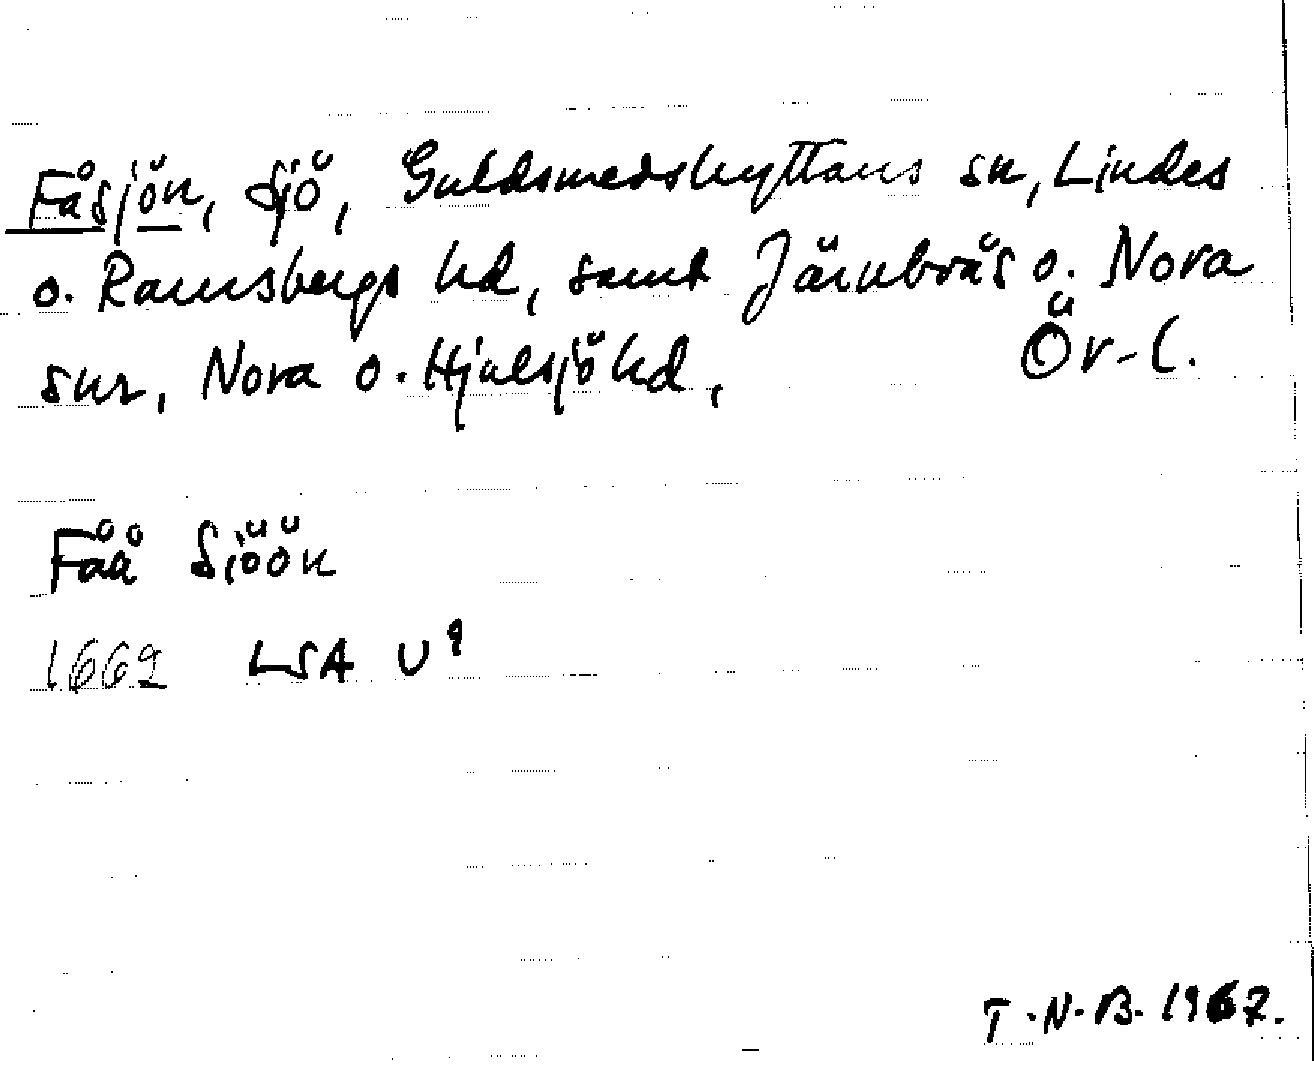 Fåsjön, sjö, Guldsmedshyttans sn, Lindes
o. Ramsbergs hd, samt Järnboås o. Nora
snr, Nora o. Hjulsjö hd, Ör-l.
Fåå Siöön
1662 LSA U⁹
T.N.B. 1967.